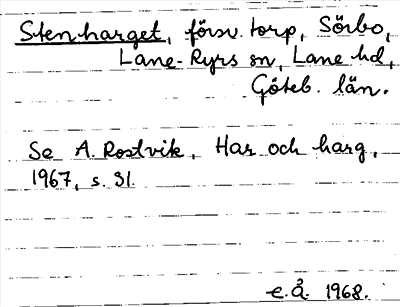 Stenharget, försv. torp, Sörbo,
Lane-Ryrs sn, Lane hd,
Göteb. län.
Se A. Rostvik, Har och harg,
1967, s. 31.
e.Å. 1968.